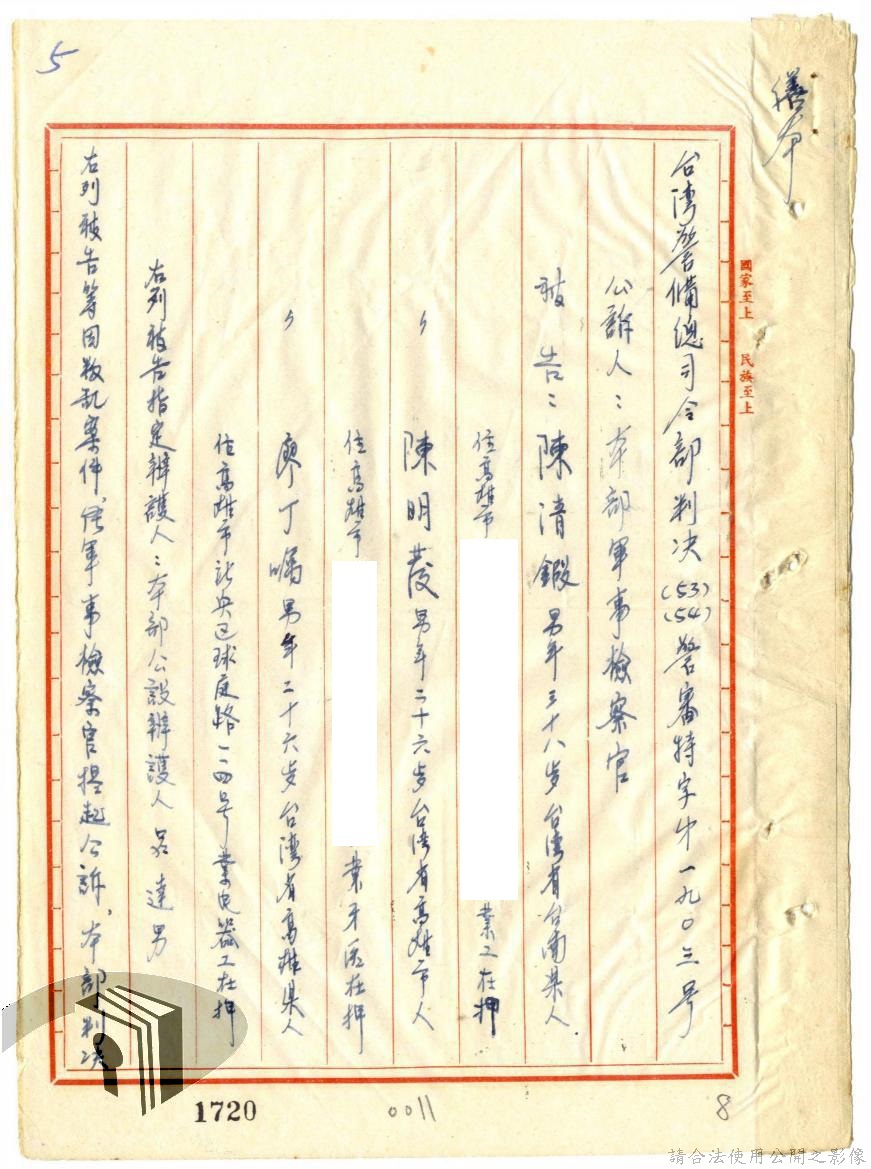 5
繕本
國家至上 民族至上
台湾警備總司令部判决 (53)(54)警審特字㐧一九〇三号
公訴人：本部軍事檢察官
被告：陳清鍜 男年三十八歩台湾省台南県人
住高雄市 業工在押
〃 陳明發 男年二十六歩台湾省高雄市人
住高雄市 業牙医在押
〃 廖丁 男年二十六歩台湾省高雄県人
住高雄市 球庭路一一四号業电器工在押
右列被告指定辯護人：本部公設辯護人 達男
右列被告等因叛乱案件，経軍事檢察官提起公訴，本部判决
1720
0011
8
請合法使用公開之影像